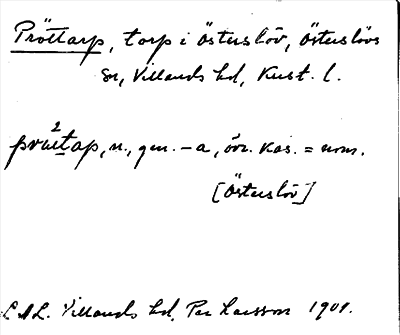 Pröttarp, torp i Österslöv, Österslövs
sn, Villands hd, Krist. l.
2
prœttap, n., gen. -a, övr. kas. = nom.
[Österslöv]
LAL. Villands hd, Per Larsson 1901.